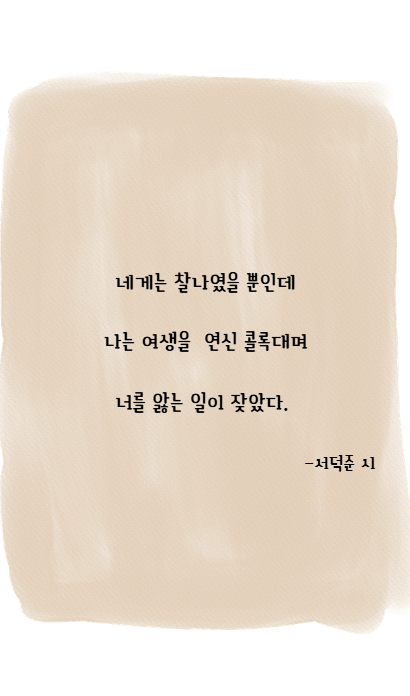 네게는 찰나였을 뿐인데
나는 여생을  연신 콜록대며
너를 앓는 일이 잦았다.
-서덕준 시